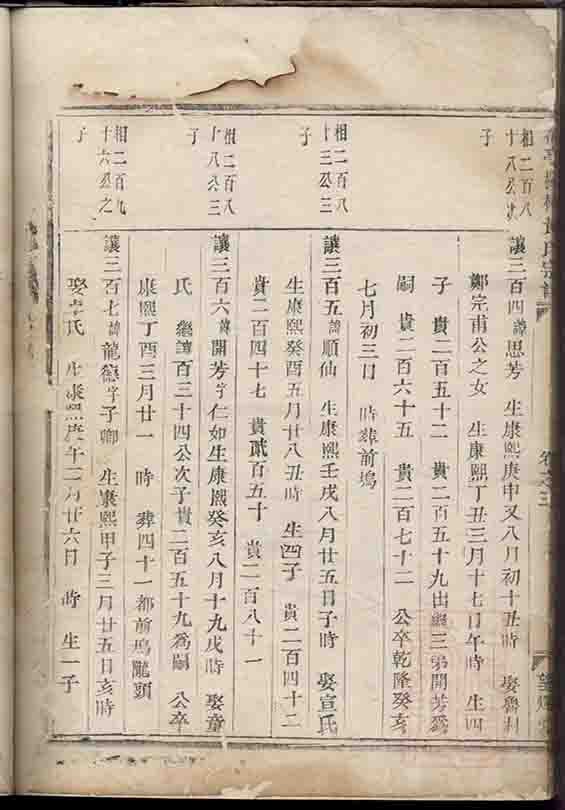 相二百八
十八公次
子
讓三百四諱思芳 生康熙庚申又八月初十丑時 娶魯村
鄭完甫公之女 生康熙丁丑三月十七日午時 生四
子 貴二百五十二 貴二百五十九出繼三弟開芳為
嗣 貴二百六十五 貴二百七十二 公卒乾隆癸亥
七月初三日 時葬前塢
相二百八
十三公三
子
讓三百五諱順仙 生康熙壬戌八月廿五日子時 娶宣氏
生康熙癸酉五月廿八丑時 生四子 貴二百四十二
貴二百四十七 貴貳百五十 貴二百八十一
相二百八
十八公三
子
讓三百六諱開芳字仁如生康熙癸亥八月十九戌時 娶章
氏 繼讓百三十四公次子貴二百五十九為嗣 公卒
康熙丁酉三月廿一 時 葬四十一都前塢龍頭
相二百九
十六公之
子
讓三百七諱龍德字子卿 生康熙甲子三月廿五日亥時
娶 氏 生康熙庚午二月廿六日 時 生一子